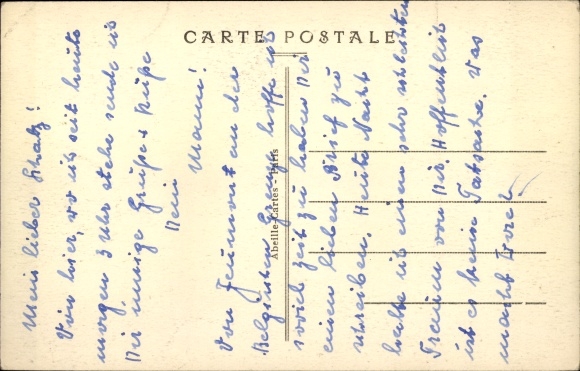 CARTE POSTALE
Abeille-Cartes - Paris
Mein lieber Schatz!
Von hier, wo ich seit heute
morgen 3 Uhr stehe sende ich
Dir innige Grüße & Küße
Dein
Mann!
Von Jeumont an der
Belgischen Grenze hoffe ich
soviel Zeit zu haben Dir
einen lieben Brief zu
schreiben. Heute Nacht
hatte ich einen sehr schlechten
Traum von Dir. Hoffentlich
ist es keine Tatsache. Was
macht